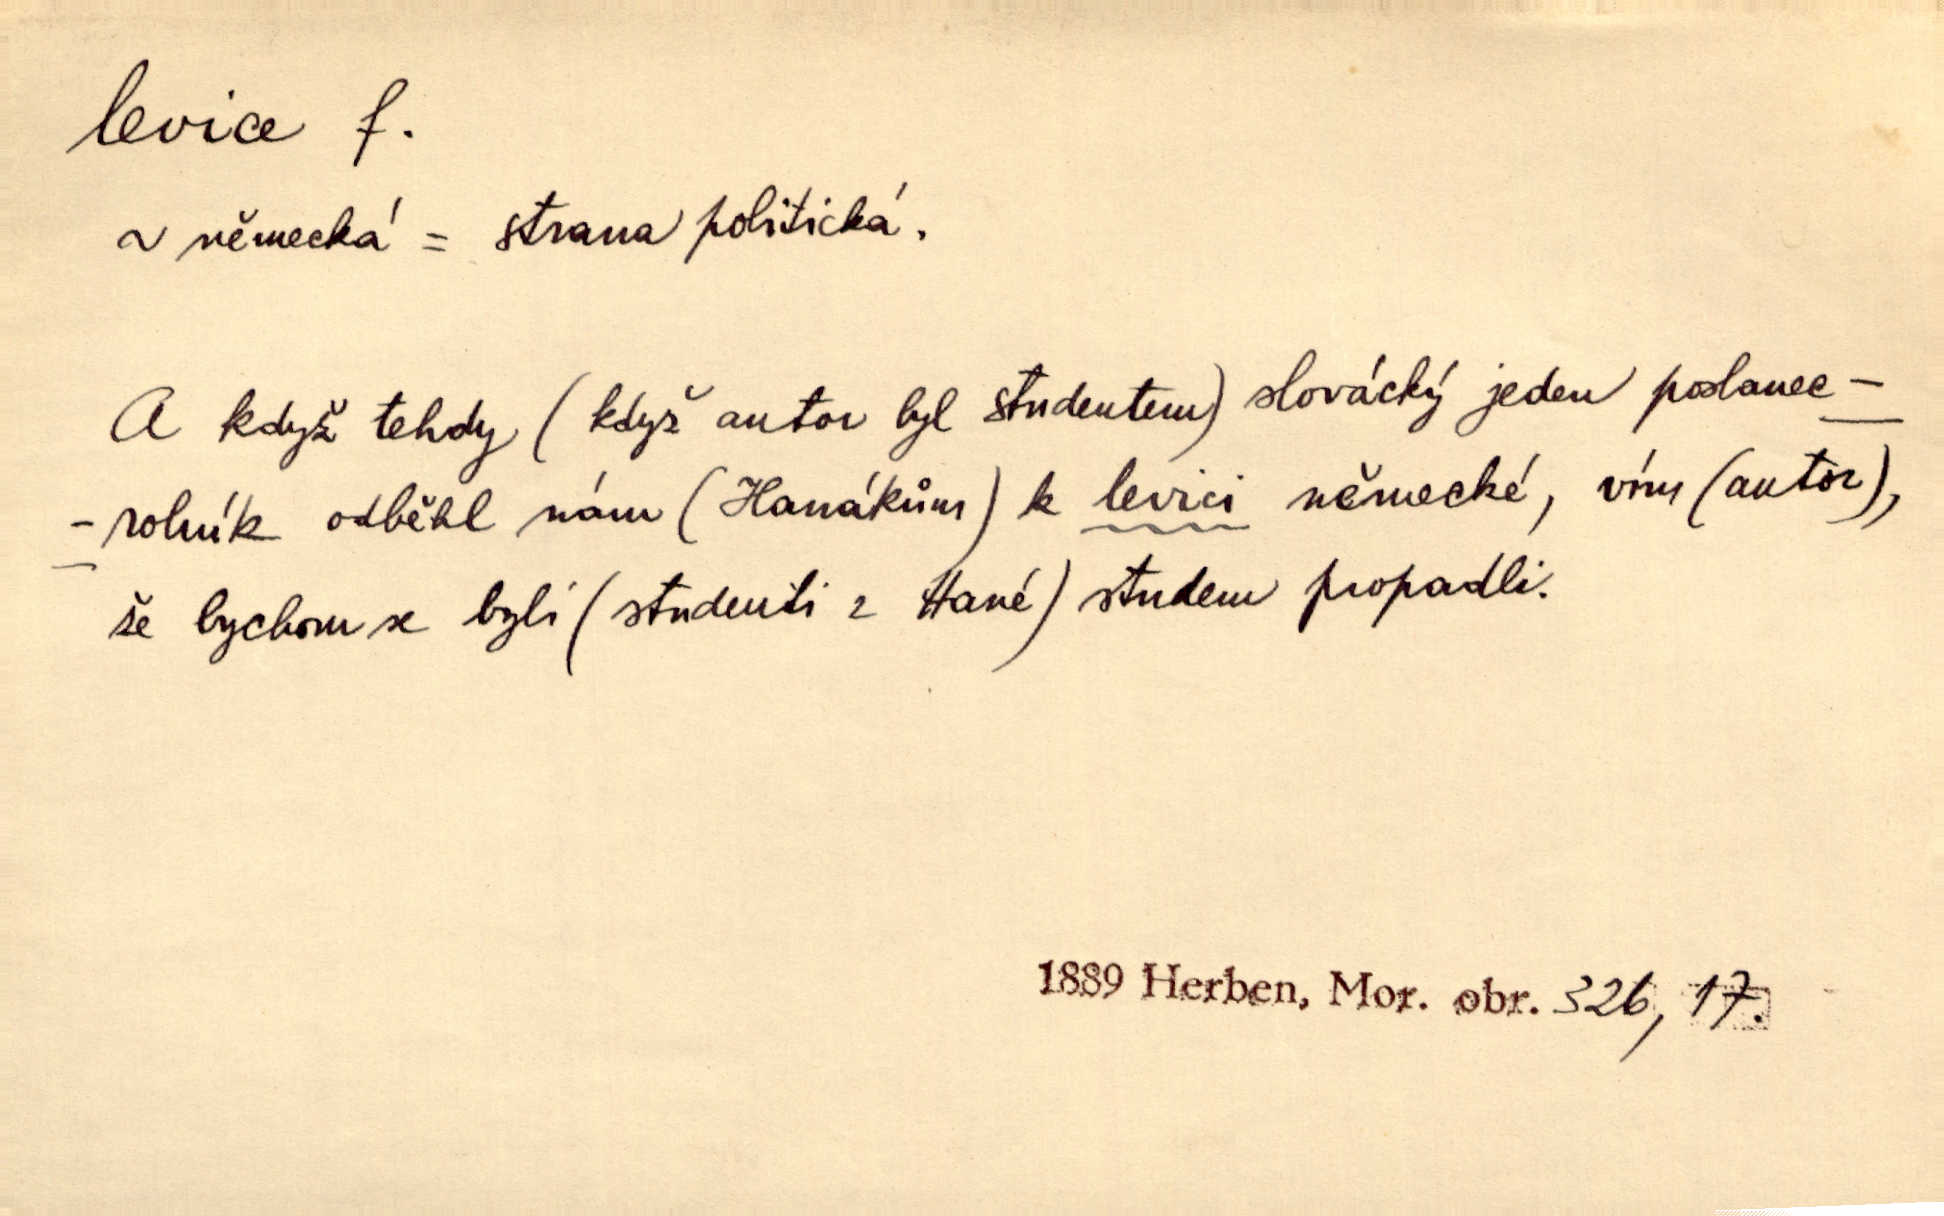 levice f.
~ německá = strana politická.
A když tehdy (když autor byl studentem) slovácký jeden poslanec -
- rolník odběhl nám (Hanákům) k levici německé, vím (autor),
že bychom se byli (studenti z Hané) studem propadli.
1889 Herben, Mor. obr. 326, 17.